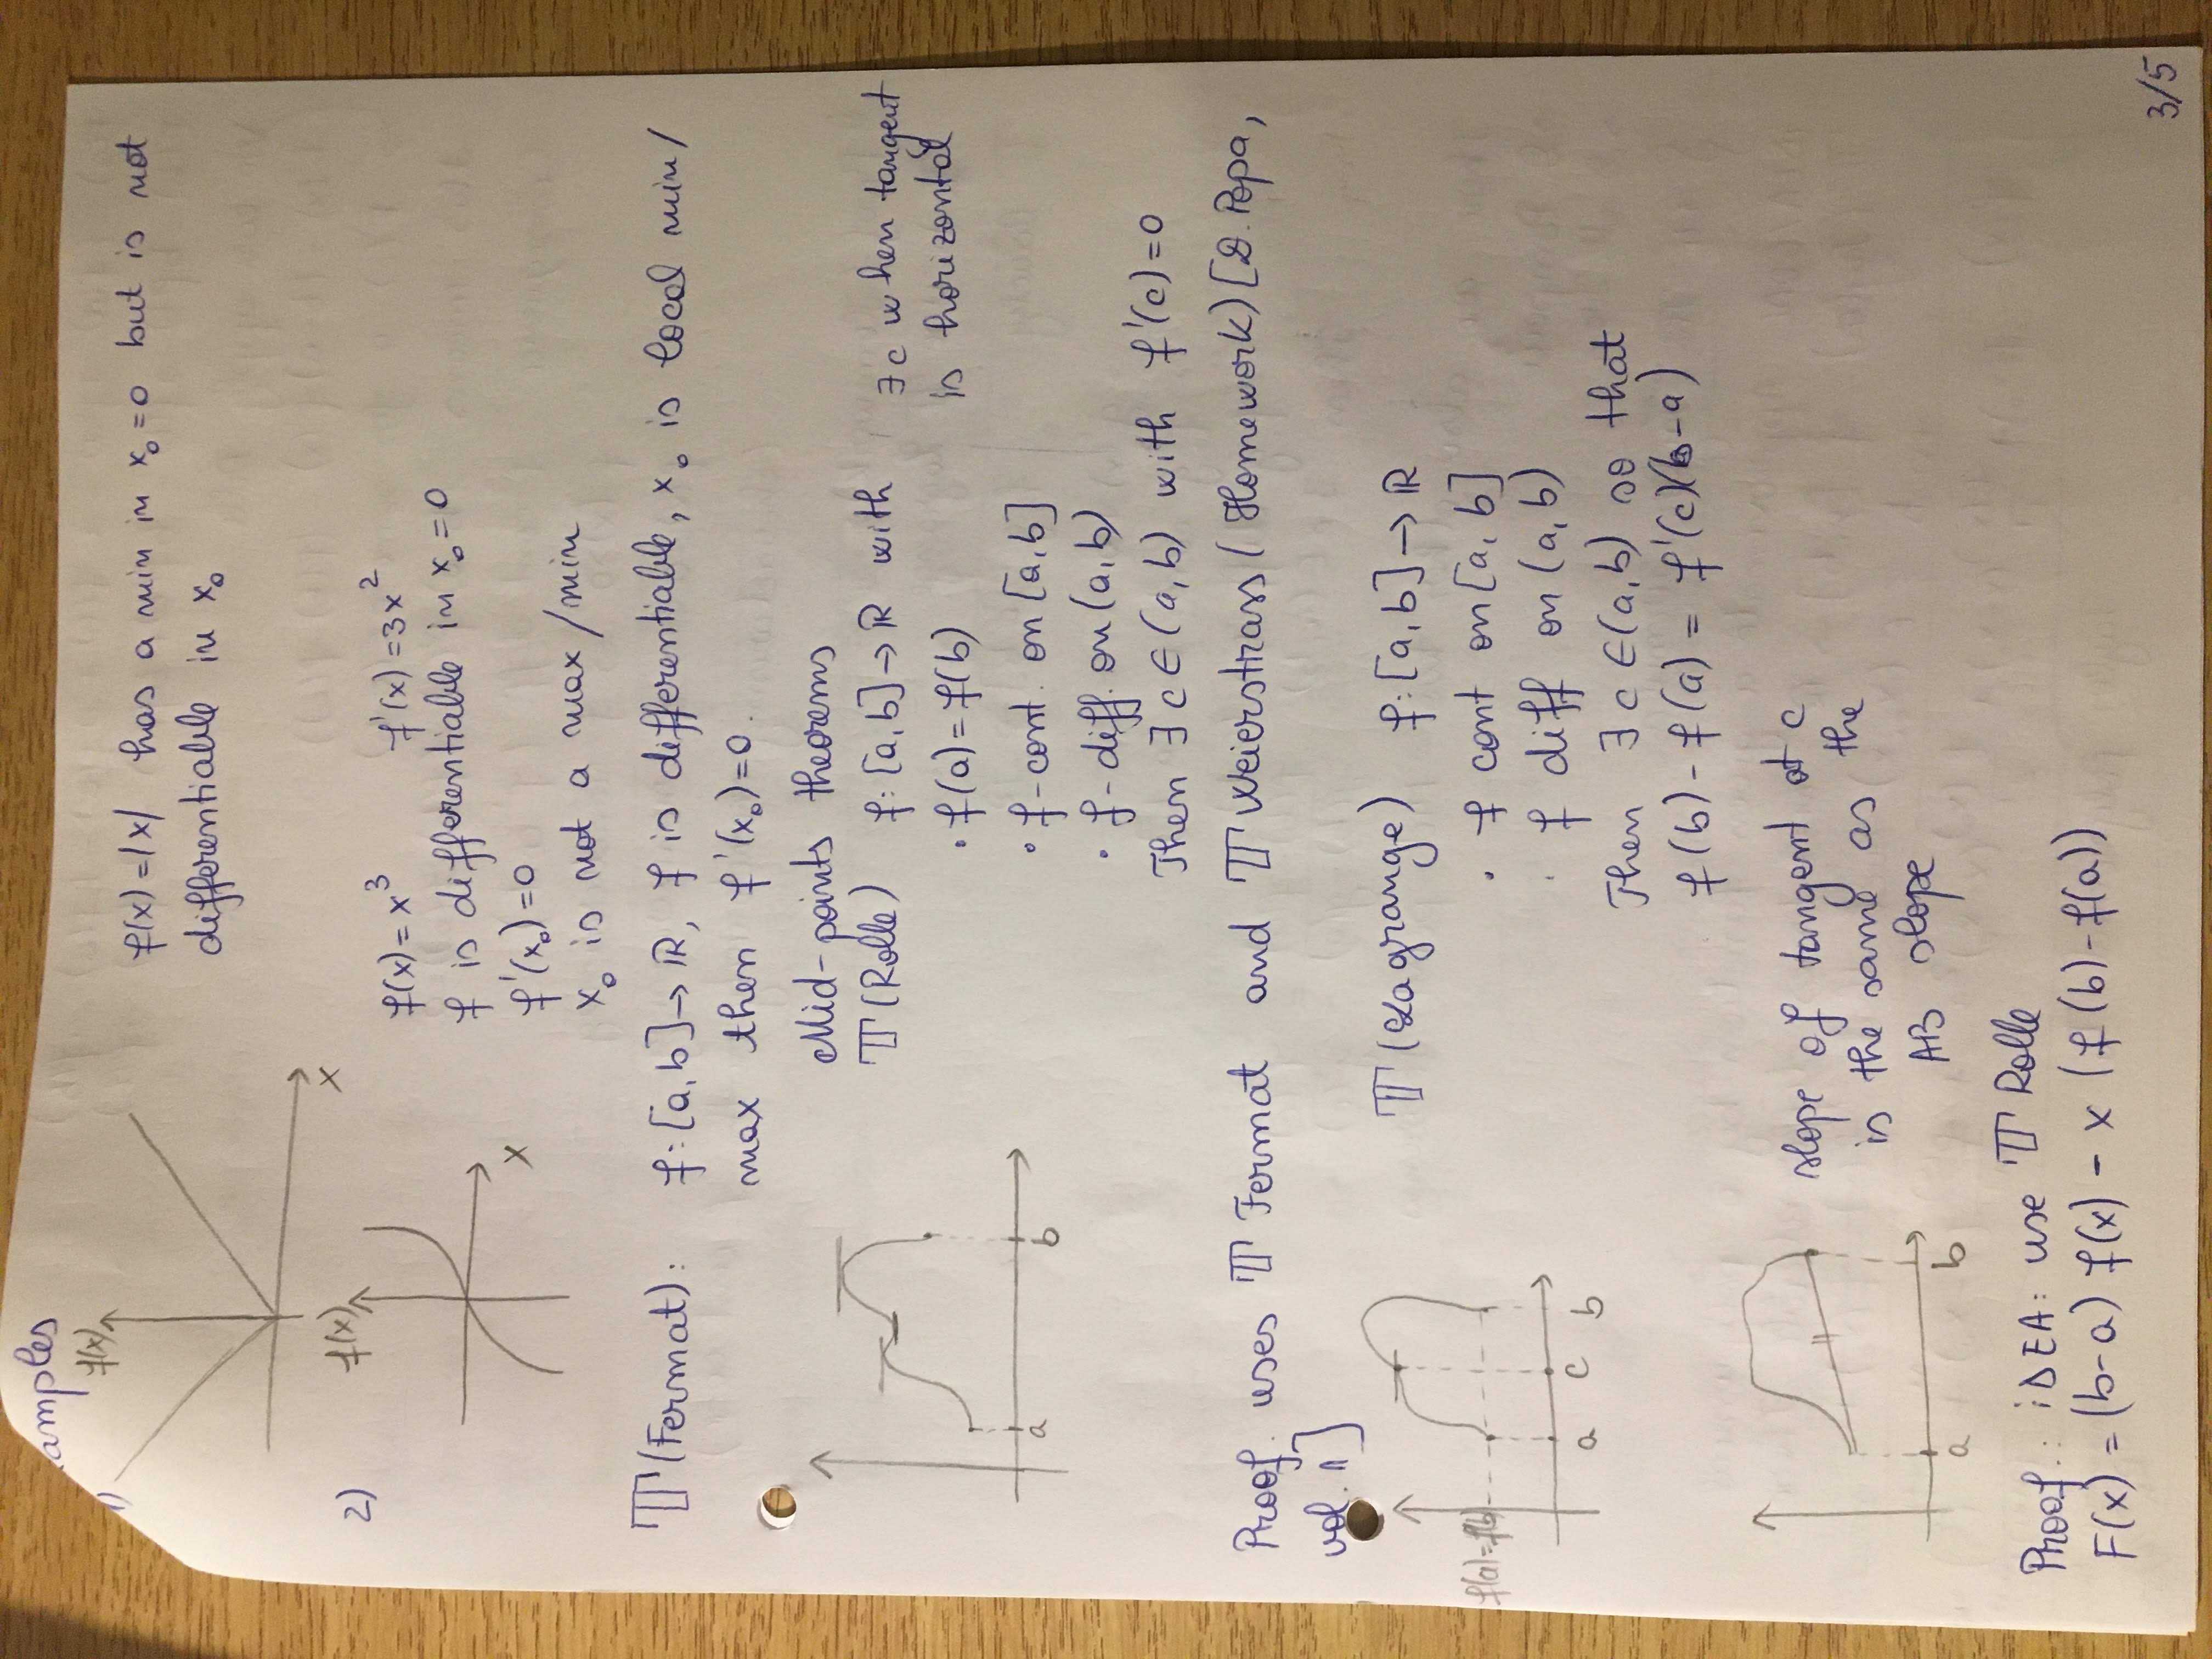 amples
1)
f(x)
x
f(x)=|x| has a min in x₀=0 but is not
differentiable in x₀
2)
f(x)
x
f(x)=x³ f'(x)=3x²
f is differentiable in x₀=0
f'(x₀)=0
x₀ is not a max/min
T(Fermat): f:[a,b]→ℝ, f is differentiable, x₀ is local min/
max then f'(x₀)=0.
Mid-points theorems
T(Rolle) f:[a,b]→ℝ with
• f(a)=f(b)
• f-cont. on [a,b]
• f-diff. on (a,b)
Then ∃ c∈(a,b) with f'(c)=0
∃ c when tangent
is horizontal
a b
Proof. uses T Fermat and T Weierstrass (Homework) [D. Popa,
vol. 1]
f(a)=f(b)
a c b
T(Lagrange) f:[a,b]→ℝ
• f cont on [a,b]
• f diff on (a,b)
Then ∃ c∈(a,b) so that
f(b)-f(a) = f'(c)(b-a)
a b
slope of tangent at c
is the same as the
AB slope
Proof.: iDEA: use T Rolle
F(x) = (b-a) f(x) - x (f(b)-f(a))
3/5